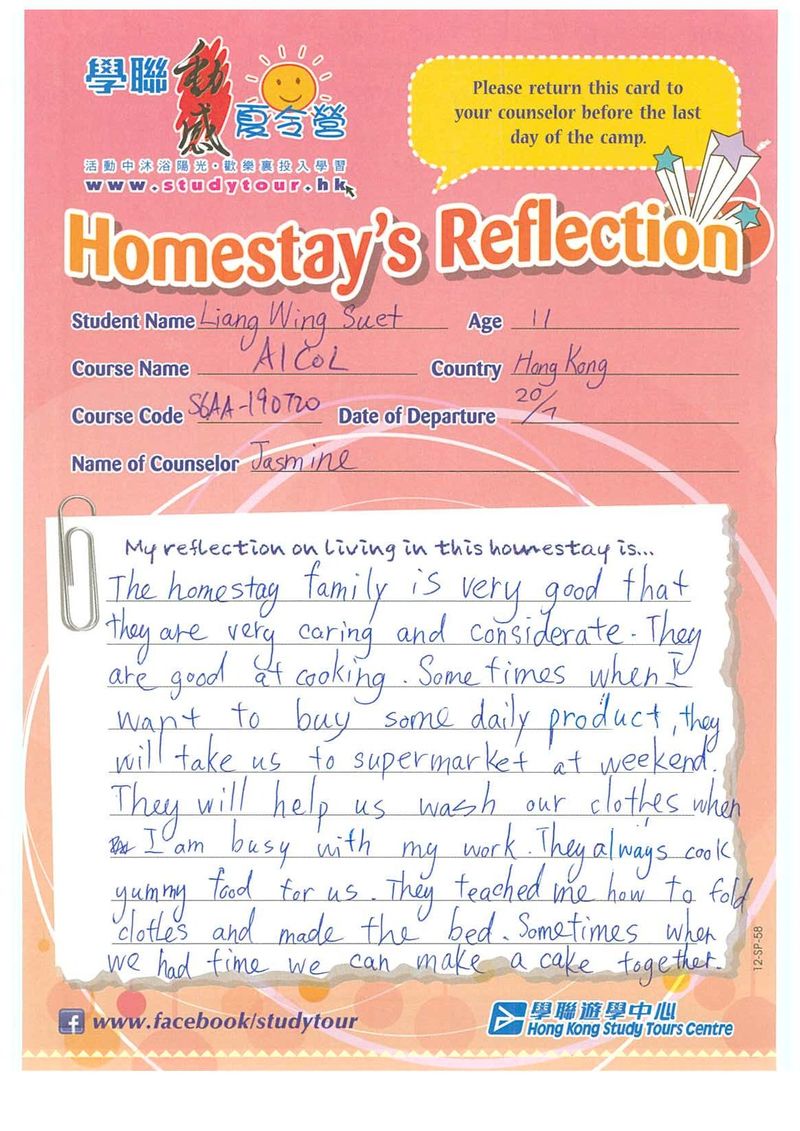 學聯動感夏令營
活動中沐浴陽光・歡樂裏投入學習
www.studytour.hk
Please return this card to
your counselor before the last
day of the camp.
Homestay's Reflection
Student Name Liang Wing Suet Age 11
Course Name AICOL Country Hong Kong
Course Code S6AA-190720 Date of Departure 20/7
Name of Counselor Jasmine
My reflection on living in this homestay is...
The homestay family is very good that
they are very caring and considerate. They
are good at cooking. Sometimes when I
want to buy some daily product, they
will take us to supermarket at weekend.
They will help us wash our clothes when
I am busy with my work. They always cook
yummy food for us. They teached me how to fold
clothes and made the bed. Sometimes when
we had time we can make a cake together.
12-SP-58
f www.facebook/studytour
學聯遊學中心
Hong Kong Study Tours Centre